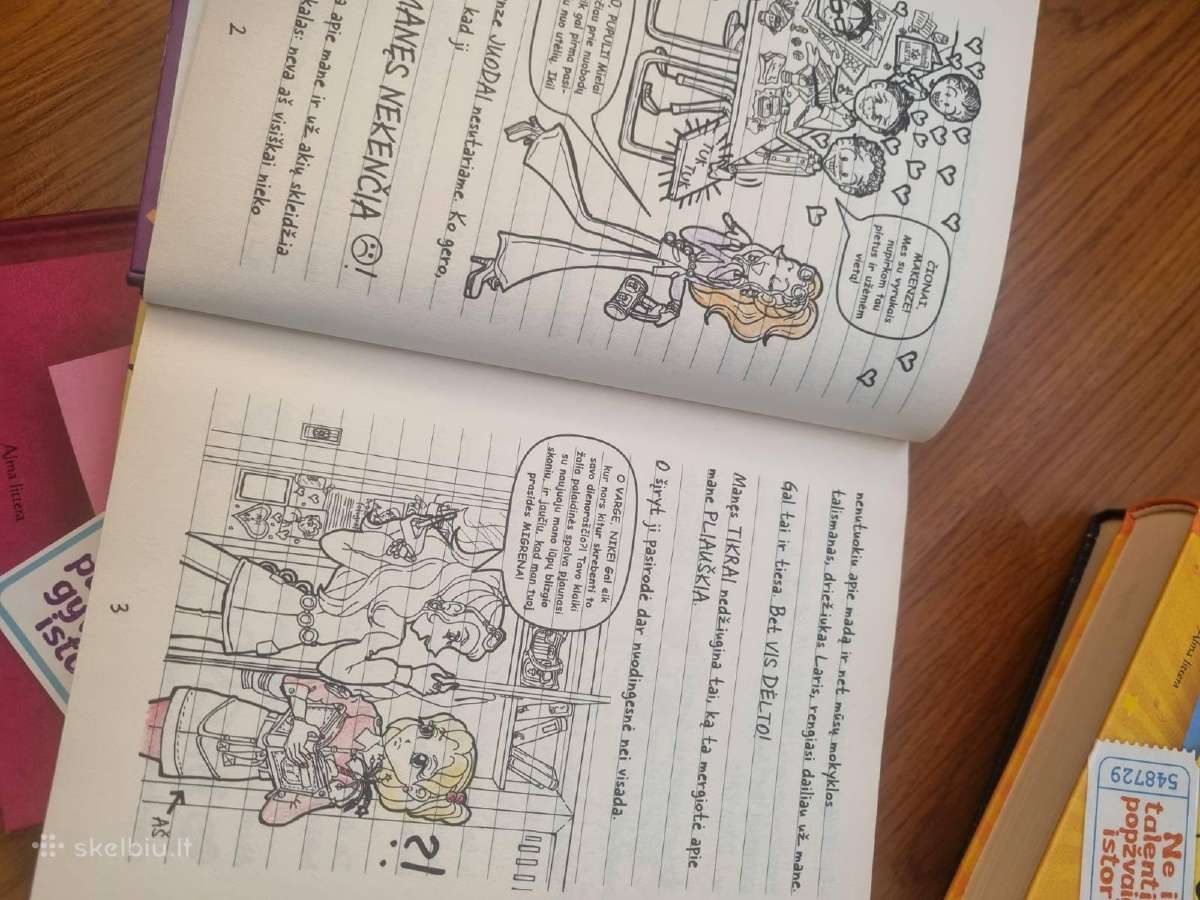 ČIONAI,
MAKENZE!
Mes su vyrukais
nupirkom tau
pietus ir užėmėm
vietą!
PUPULI! Mielai
prie nuobodų
gal pirma pasi-
nuo utėlių. Iki!
TUK
TUK
TUK
JUODAI nesutariame. Ko gero,
kad ji
MANĘS NEKENČIA !
apie mane ir už akių skleidžia
kalas: neva aš visiškai nieko
2
nenutuokiu apie madą ir net mūsų mokyklos
talismanas, driežiukas Laris, rengiasi dailiau už mane.
Gal tai ir tiesa. Bet VIS DĖLTO!
Manęs TIKRAI nedžiugina tai, ką ta mergiotė apie
mane PLIAUŠKIA.
O šįryt ji pasirodė dar nuodingesnė nei visada.
O VARGE, NIKE! Gal eik
kur nors kitur skrebenti to
savo dienoraščio?! Tavo klaiki
žalia palaidinės spalva pjaunasi
su naujuoju mano lūpų blizgio
skoniu, ir jaučiu, kad man tuoj
prasidės MIGRENA!
?!
AŠ
3
Alma littera
Alma littera
548729
Ne
talenti
popžvai
istor
skelbiu.lt